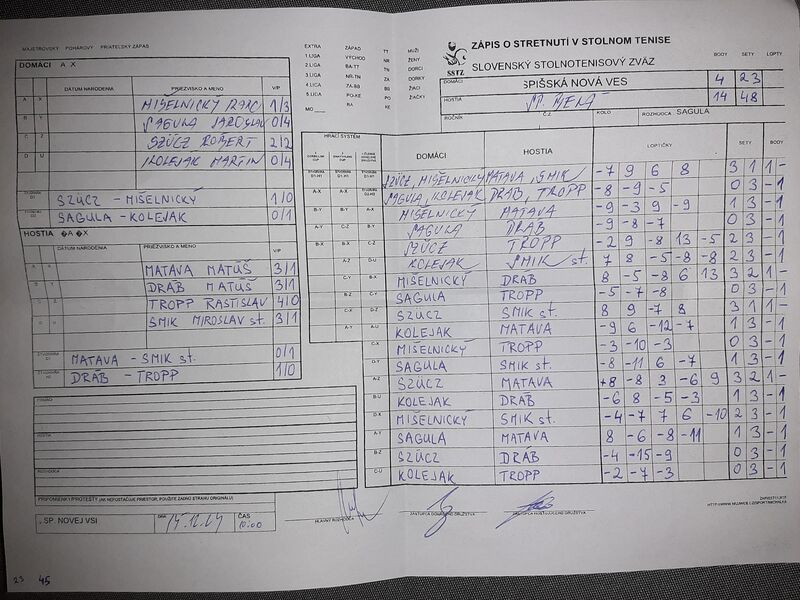 MAJSTROVSKÝ POHÁROVÝ PRIATEĽSKÝ ZÁPAS
DOMÁCI A X
DÁTUM NARODENIA PRIEZVISKO A MENO V/P
A X MIŠELNICKÝ 1/3
B Y SAGULA JAROSLAV 0/4
C Z SZÜCZ RÓBERT 2/2
D U KOLEJAK MARTIN 0/4
SZÜCZ - MIŠELNICKÝ 1/0
SAGULA - KOLEJAK 0/1
HOSTIA �A �X
DÁTUM NARODENIA PRIEZVISKO A MENO V/P
MATAVA MATÚŠ 3/1
DRÁB MATÚŠ 3/1
TROPP RASTISLAV 4/0
SMIK MIROSLAV st. 3/1
MATAVA - SMIK st. 0/1
DRÁB - TROPP 1/0
DOMÁCI
HOSTIA
ROZHODCA
PRIPOMIENKY PROTESTY (AK NEPOSTAČUJE PRIESTOR, POUŽITE ZADNÚ STRANU ORIGINÁLU)
. SP. NOVEJ VSI DŇA ČAS 10:00
HLAVNÝ ROZHODCA
ZÁSTUPCA DOMÁCEHO DRUŽSTVA
ZÁSTUPCA HOSŤUJÚCEHO DRUŽSTVA
23 45
EXTRA ZÁPAD TT MUŽI
1 LIGA VÝCHOD NR ŽENY
2 LIGA BA-TT TN DORCI
3 LIGA NR-TN ZA DORKY
4 LIGA ZA-BB BB ŽIACI
5 LIGA PO-KE PO ŽIAČKY
MO RA KE
SSTZ
ZÁPIS O STRETNUTÍ V STOLNOM TENISE
SLOVENSKÝ STOLNOTENISOVÝ ZVÄZ
BODY SETY LOPTY
DOMÁCI SPIŠSKÁ NOVÁ VES 4 23
HOSTIA SP. BELÁ 14 48
ROČNÍK Č.Z. KOLO ROZHODCA SAGULA
HRACÍ SYSTÉM DOMÁCI HOSTIA LOPTIČKY SETY BODY
SZÜCZ, MIŠELNICKÝ MATAVA, SMIK -7 9 6 8 3 1 1 -
SAGULA, KOLEJAK DRÁB, TROPP -8 -9 -5 0 3 - 1
A-X B-Y MIŠELNICKÝ MATAVA -9 -3 9 -9 1 3 - 1
SAGULA DRÁB -9 -8 -7 0 3 - 1
SZÜCZ TROPP -2 9 -8 13 -5 2 3 - 1
KOLEJAK SMIK st. 7 8 -5 -8 -8 2 3 - 1
MIŠELNICKÝ DRÁB 8 -5 -8 6 13 3 2 1 -
SAGULA TROPP -5 -7 -8 0 3 - 1
SZÜCZ SMIK st. 8 9 -7 8 3 1 1 -
KOLEJAK MATAVA -9 6 -12 -7 1 3 - 1
MIŠELNICKÝ TROPP -3 -10 -3 0 3 - 1
SAGULA SMIK st. -8 -11 6 -7 1 3 - 1
A-Z SZÜCZ MATAVA +8 -8 3 -6 9 3 2 1 -
B-U KOLEJAK DRÁB -6 8 -5 -3 1 3 - 1
D-X MIŠELNICKÝ SMIK st. -4 -7 7 6 -10 2 3 - 1
A-Y SAGULA MATAVA 8 -6 -8 -11 1 3 - 1
B-Z SZÜCZ DRÁB -4 -15 -9 0 3 - 1
C-U KOLEJAK TROPP -2 -7 -3 0 3 - 1